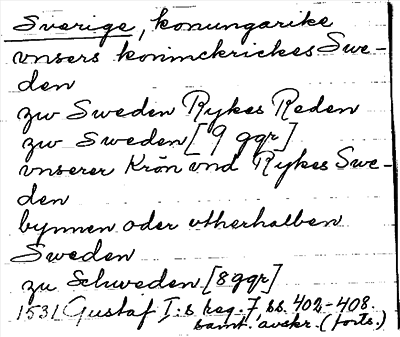 Sverige, konungarike
vnsers koninckrickes Swe-
den
zw Sweden Rykes Reden
zw Sweden [9 ggr]
vnserer Krön vnd Rykes Swe-
den
bynnen oder vtherhalben
Sweden
zu Schweden [8 ggr]
1531 Gustaf I:s reg. 7 ss. 402-408.
samt. avskr. (forts.)